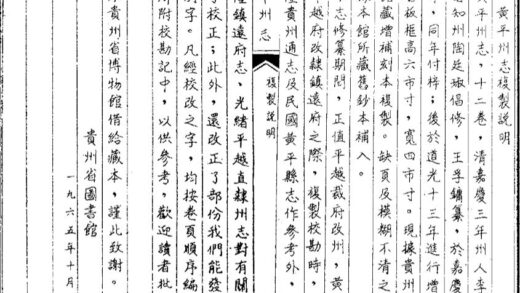 黃平州志複製說明
黃平州志，十二卷，清嘉慶三年州人李
知州陶廷㻑倡修，王孚鏞纂，於嘉慶
，同年付梓；後於道光十三年進行增
板框高六市寸，寬四市寸。現據貴州
藏增補刻本複製。缺頁及模糊不清之
本館所藏舊鈔本補入。
志修纂期間，正值平越裁府改州，黃
越府改隸鎮遠府之際，複製校勘時，
隆貴州通志及民國黃平縣志作參考外，
平州志 複製說明
隆鎮遠府志、光緒平越直隸州志對有關
字校正；此外，還改正了部份我們能發
字。凡經校改之字，均按卷頁順序編
附校勘記中，以供參考，歡迎讀者批
貴州省博物館借給藏本，謹此致謝。
貴州省圖書館
一九六五年十月